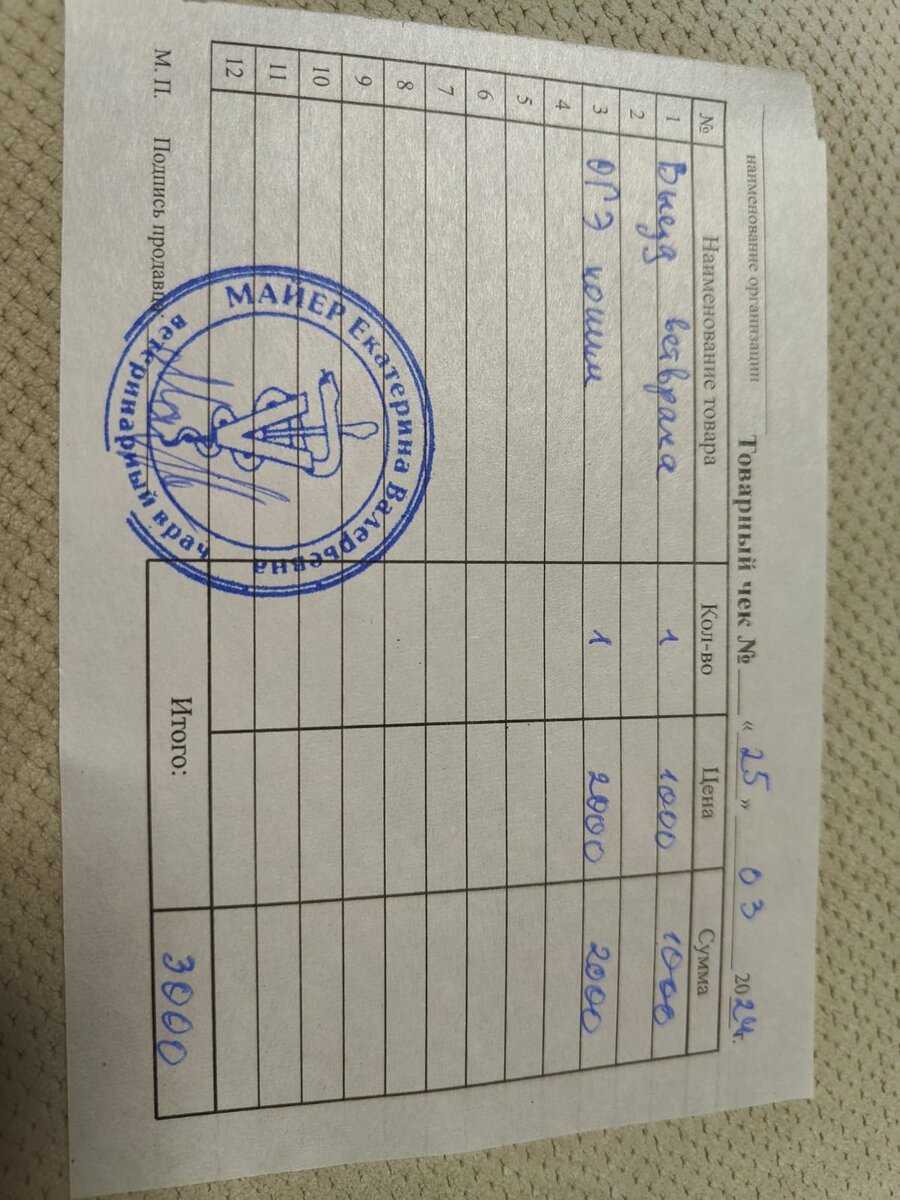 наименование организации
Товарный чек № « 25 » 03 2024г.
№ Наименование товара Кол-во Цена Сумма
1 Выезд ветврача 1 1000 1000
2
3 ОГЭ кошки 1 2000 2000
4
5
6
7
8
9
10
11
12
Итого: 3000
М. П. Подпись продавца
МАЙЕР Екатерина Валерьевна
ветеринарный врач